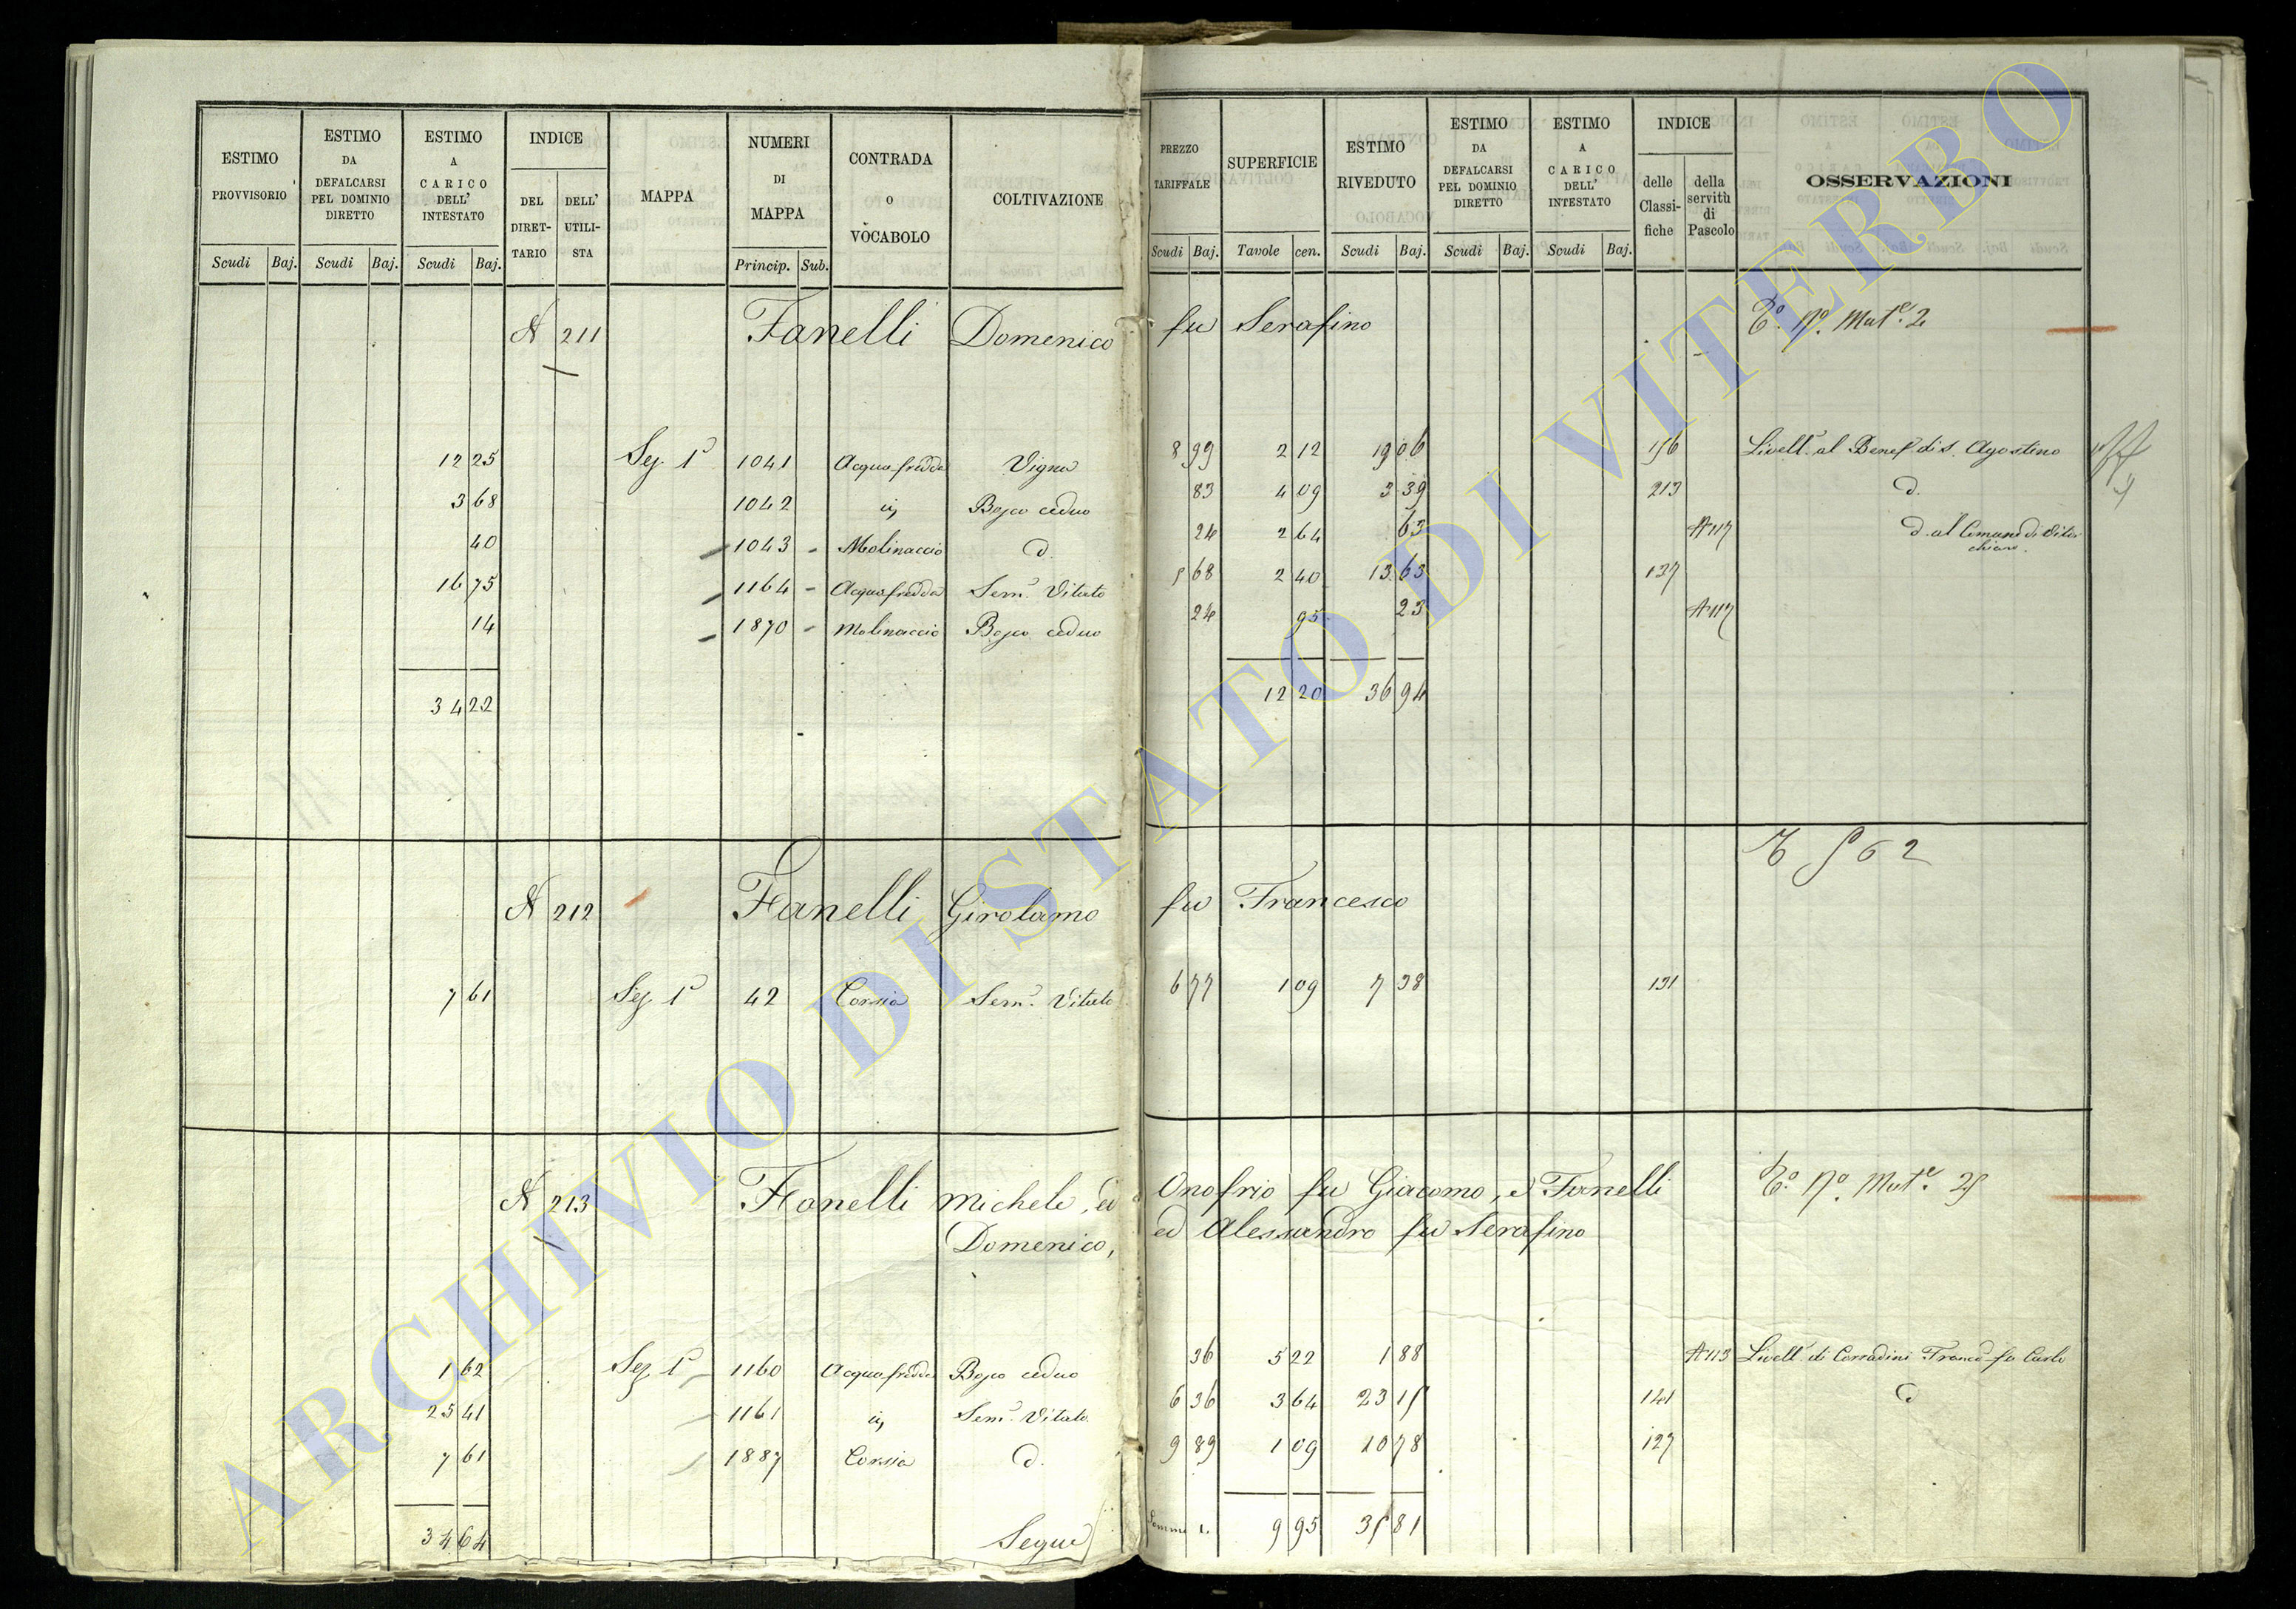 ESTIMO PROVVISORIO
ESTIMO DA DEFALCARSI PEL DOMINIO DIRETTO
ESTIMO A CARICO DELL' INTESTATO
INDICE
DEL DIRET-TARIO
DELL' UTILI-STA
MAPPA
NUMERI DI MAPPA
CONTRADA O VOCABOLO
COLTIVAZIONE
PREZZO TARIFFALE
SUPERFICIE
ESTIMO RIVEDUTO
ESTIMO DA DEFALCARSI PEL DOMINIO DIRETTO
ESTIMO A CARICO DELL' INTESTATO
INDICE
delle Classi-fiche
della servitù di Pascolo
OSSERVAZIONI
Scudi Baj. Scudi Baj. Scudi Baj. Princip. Sub. Scudi Baj. Tavole cen. Scudi Baj. Scudi Baj. Scudi Baj.
N 211 Fanelli Domenico fu Serafino Mut.e 2
12 25 Sez. 1a 1041 Acquafredda Vigna 8 99 2 12 19 06 156 Livell. al Benef. di S. Agostino
3 68 1042 id Bosco ceduo 83 4 09 3 39 213 d.
40 1043 Molinaccio d. 24 2 64 63 A117 d. al Comune di Vitorchiano
16 75 1164 Acquafredda Sem.o Vitato 5 68 2 40 13 63 137
14 1870 Molinaccio Bosco ceduo 24 95 23 A117
34 22 12 20 36 94
N 212 Fanelli Girolamo fu Francesco
7 61 Sez. 1a 42 Corsia Sem.o Vitato 6 77 1 09 7 38 131
N 213 Fanelli Michele, ed Onofrio fu Giacomo, e Fanelli Mut.e 25
Domenico, ed Alessandro fu Serafino
1 62 Sez. 1a 1160 Acquafredda Bosco ceduo 36 5 22 1 88 A113 Livell. di Corradini Franco fu Carlo
25 41 1161 id Sem.o Vitato 6 36 3 64 23 15 141 d
7 61 1887 Corsia d. 9 89 1 09 10 78 127
34 64 Segue Somma 9 95 35 81
ARCHIVIO DI STATO DI VITERBO